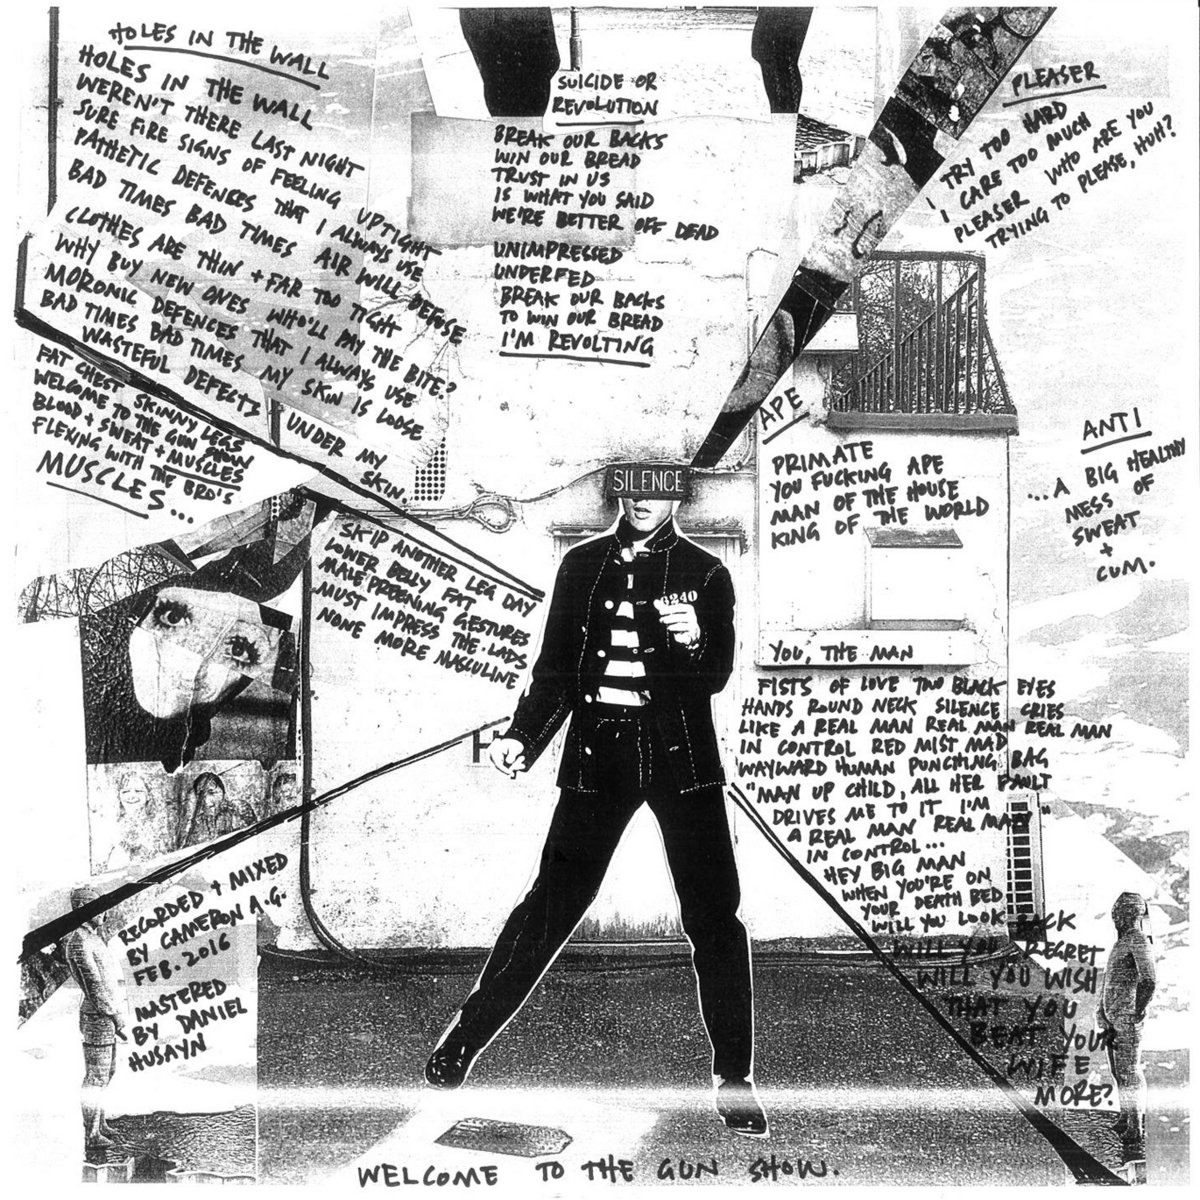 HOLES IN THE WALL
HOLES IN THE WALL
WEREN'T THERE LAST NIGHT
SURE FIRE SIGNS OF FEELING UPTIGHT
PATHETIC DEFENCES THAT I ALWAYS USE
BAD TIMES BAD TIMES AIR WILL DEFUSE
CLOTHES ARE THIN + FAR TOO TIGHT
WHY BUY NEW ONES WHO'LL PAY THE BITE?
MORONIC DEFENCES THAT I ALWAYS USE
BAD TIMES BAD TIMES MY SKIN IS LOOSE
WASTEFUL DEFECTS UNDER MY SKIN.
FAT CHEST SKINNY LEGS
WELCOME TO THE GUN SHOW
BLOOD + SWEAT + MUSCLES
FLEXING WITH THE BRO'S
MUSCLES...
SKIP ANOTHER LEG DAY
LOWER BELLY FAT
MALE PREENING GESTURES
MUST IMPRESS THE LADS
NONE MORE MASCULINE
SUICIDE OR
REVOLUTION
BREAK OUR BACKS
WIN OUR BREAD
TRUST IN US
IS WHAT YOU SAID
WE'RE BETTER OFF DEAD
UNIMPRESSED
UNDERFED
BREAK OUR BACKS
TO WIN OUR BREAD
I'M REVOLTING
PLEASER
I TRY TOO HARD
I CARE TOO MUCH
PLEASER WHO ARE YOU
TRYING TO PLEASE, HUH?
APE
PRIMATE
YOU FUCKING APE
MAN OF THE HOUSE
KING OF THE WORLD
ANTI
...A BIG HEALTHY
MESS OF
SWEAT
+
CUM.
SILENCE
6240
YOU, THE MAN
FISTS OF LOVE TWO BLACK EYES
HANDS ROUND NECK SILENCE CRIES
LIKE A REAL MAN REAL MAN REAL MAN
IN CONTROL RED MIST MAD
WAYWARD HUMAN PUNCHING BAG
"MAN UP CHILD, ALL HER FAULT
DRIVES ME TO IT I'M
A REAL MAN REAL MAN"
IN CONTROL...
HEY BIG MAN
WHEN YOU'RE ON
YOUR DEATH BED
WILL YOU LOOK BACK
WILL YOU REGRET
WILL YOU WISH
THAT YOU
BEAT YOUR
WIFE
MORE?
RECORDED + MIXED
BY CAMERON A.G.
FEB. 2016
MASTERED
BY DANIEL
HUSAYN
WELCOME TO THE GUN SHOW.